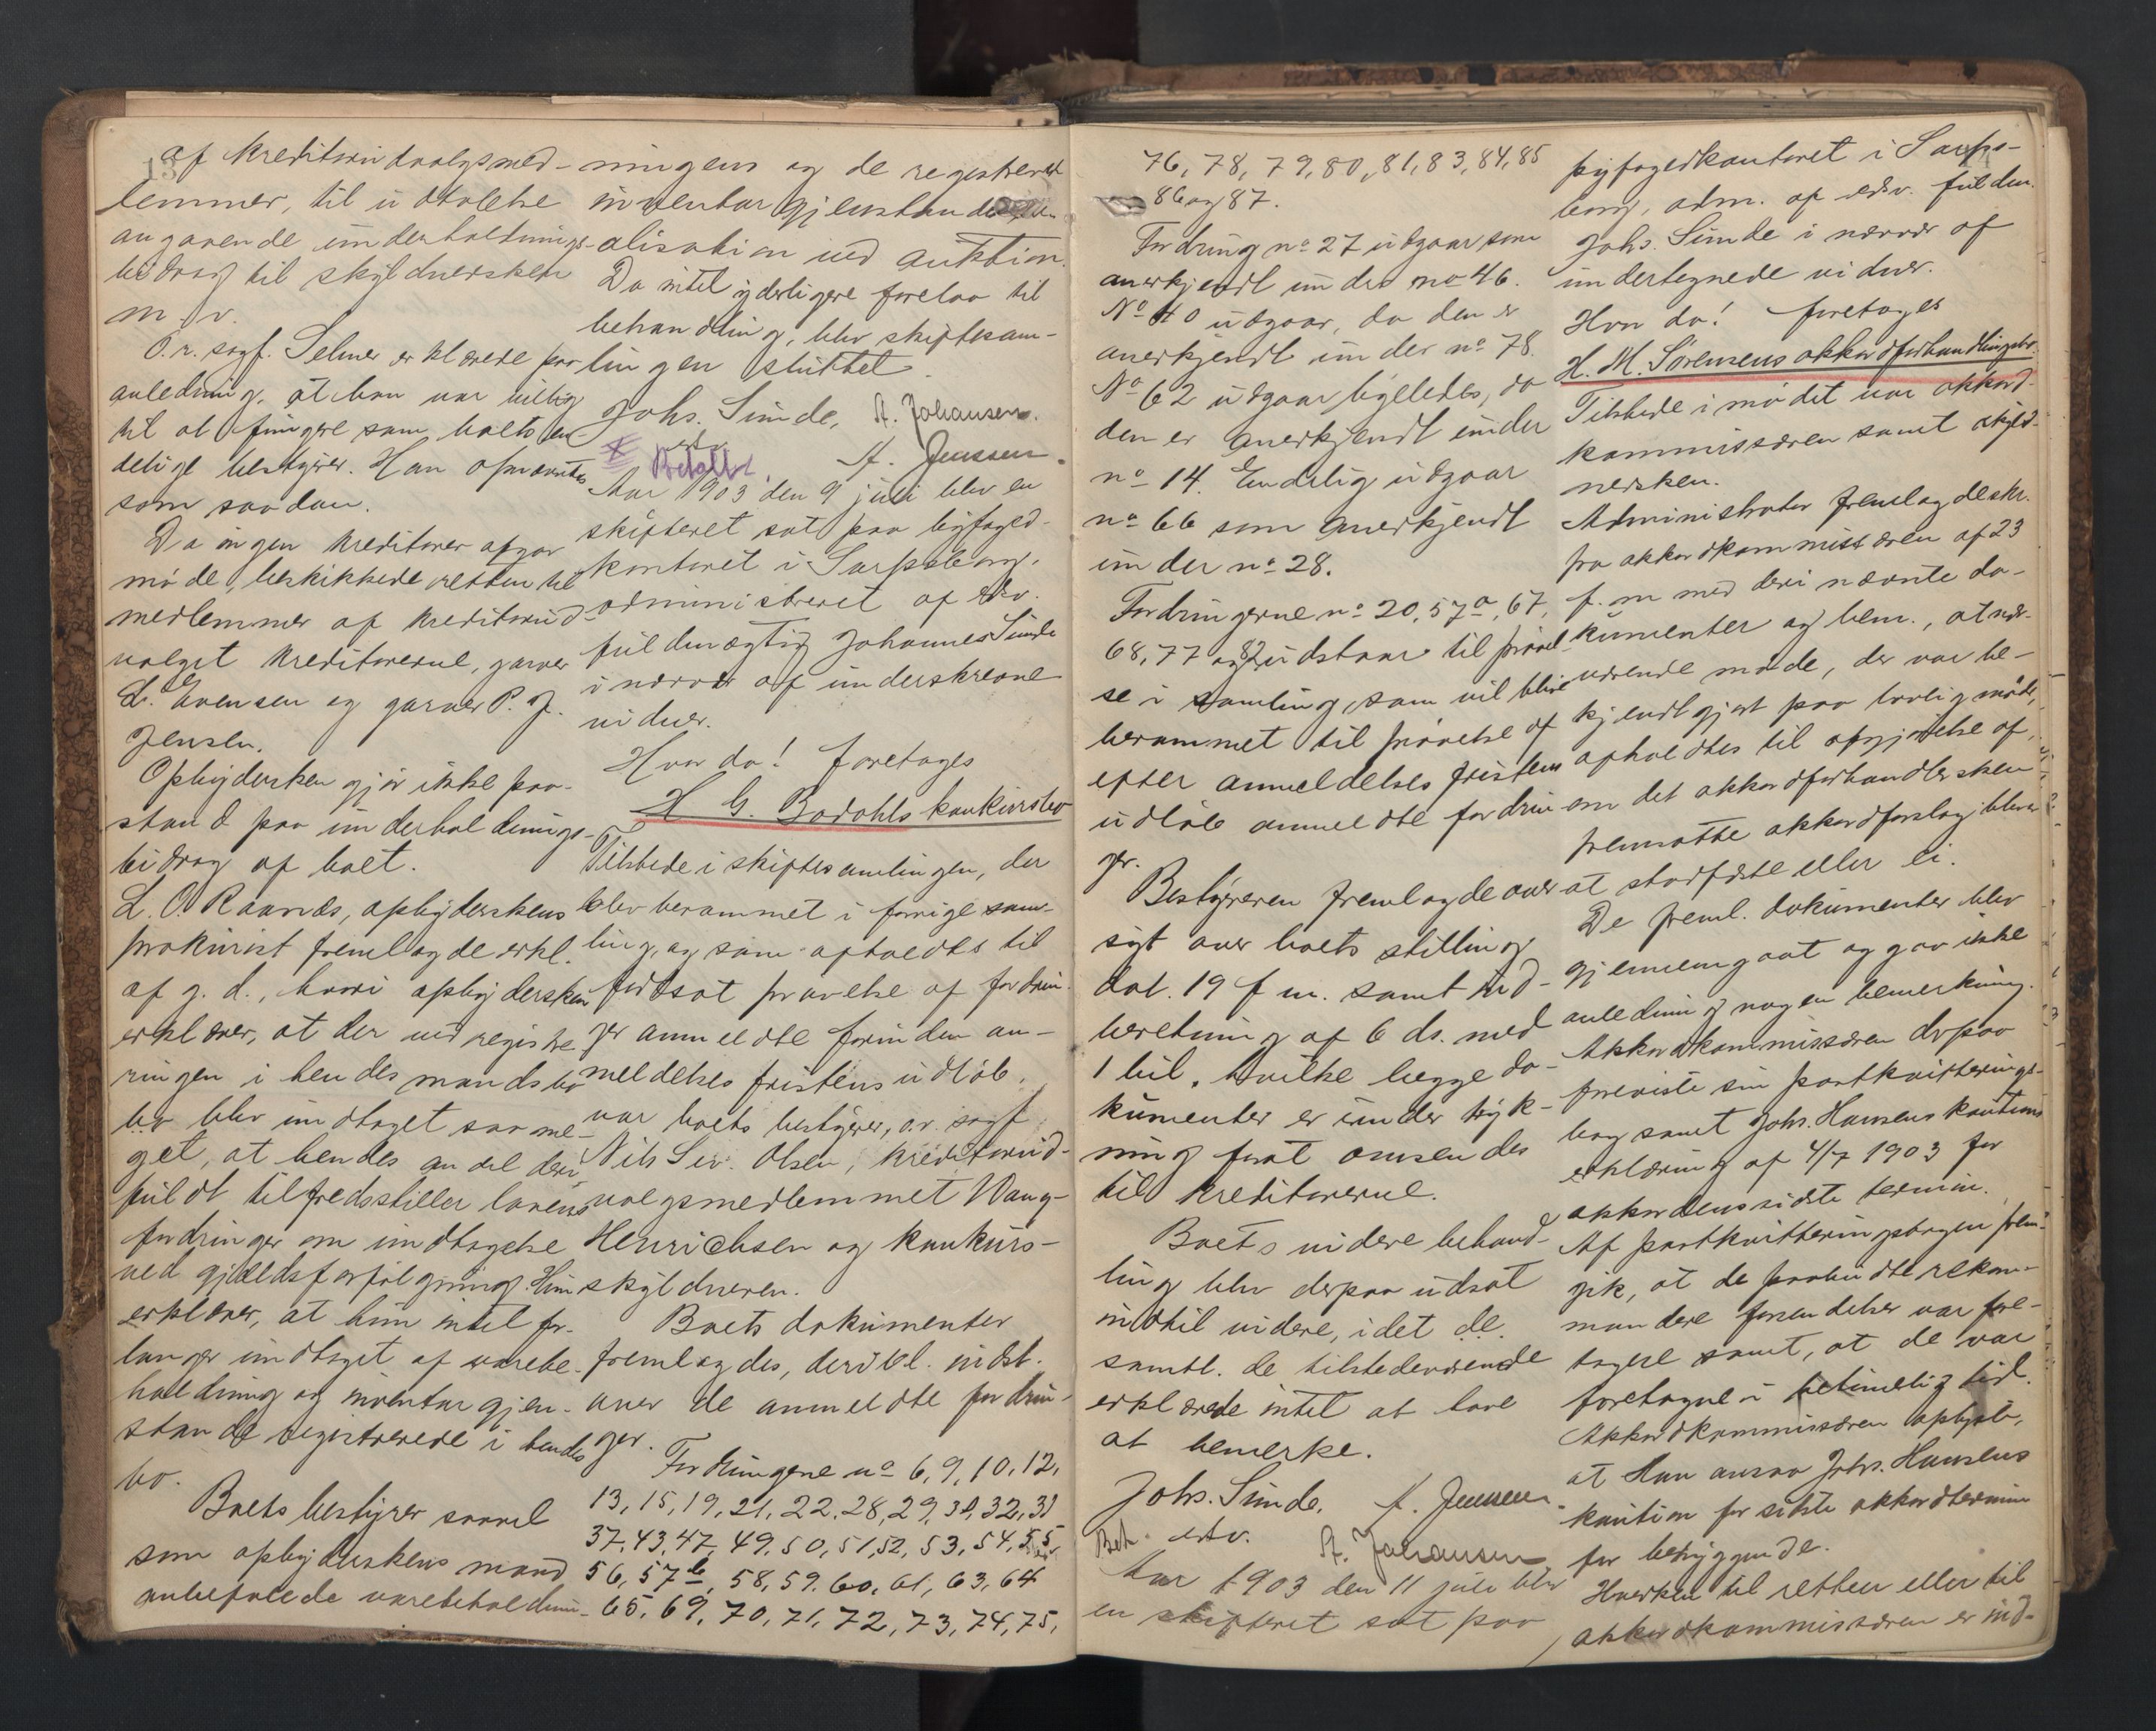 af kreditorudvalgsmed-
lemmer, til udtalelse
angaaende underholdnings-
bidrag til skyldnersken
m. v.
O.r. sagf. Selmer erklærede paa
anledning, at han var villig
til at fungere som boets en-
delige bestyrer. Han opnævntes
som saadan.
Da ingen kreditorer afgav
møde, beskikkede retten til
medlemmer af kreditorud-
valget kreditorerne, garver
L. Evensen og garver P. J.
Jensen.
Opbydersken gjør ikke paa-
stand paa underholdnings-
bidrag af boet.
L. O. Raanæs, opbyderskens
prokurist fremlagde erkl.
af g. d., hvori opbydersken
erklærer, at der ved registre
ringen i hendes mands
bo blev undtaget saa me-
get, at hendes andel deri
fuldt tilfredsstiller lovens
fordringer om undtagelse
ved gjældsforfølgning. Hun
erklærer, at hun intet for-
langer undtaget af varebe-
holdning og inventargjen-
stande registrerede i hendes
bo.
Boets bestyrer saavel
som opbyderskens mand
anbefalede varebeholdnin-
ningens og de registrerede
inventargjenstandes re-
alisation ved auktion.
Da intet yderligere forelaa til
behandling, blev skiftesam-
lingen sluttet.
Johs. Sunde, A. Johansen.
edsv. A. Jenssen.
Betalt.
Aar 1903 den 9 juli blev en
skifteret sat paa byfoged-
kontoret i Sarpsborg,
administreret af edsv.
fuldmægtig Johannes Sunde
i nærvær af underskrevne
vidner.
Hvor da! foretoges
H G. Bodahls konkursbo
Tilstede i skiftesamlingen, der
blev berammet i forrige sam-
ling, og som afholdtes til
fortsat prøvelse af fordrin-
ger anmeldte forinden an-
meldelsesfristens udløb,
var boets bestyrer, o.r. sagf
Nils Siv. Olsen, kreditorud-
valgsmedlemmet Wang-
Henrichsen og konkurs-
skyldneren.
Boets dokumenter
fremlagdes, deribl. indst.
over de anmeldte fordrin-
ger.
Fordringerne no 6, 9, 10, 12,
13, 15, 19, 21, 22, 28, 29, 30, 32, 33
37, 43, 47, 49, 50, 51, 52, 53, 54, 55,
56, 57b, 58, 59, 60, 61, 63, 64
65, 69, 70, 71, 72, 73, 74, 75,
76, 78, 79, 80, 81, 83, 84, 85
86 og 87.
Fordring no 27 udgaar som
anerkjendt under no 46.
No 40 udgaar, da den er
anerkjendt under no 78.
No 62 udgaar ligeledes, da
den er anerkjendt under
no 14. Endelig udgaar
no 66 som anerkjendt
under no 28.
Fordringerne no 20, 57a, 67,
68, 77 og 82 udstaar til prøvel-
se i samling, som vil blive
berammet til prøvelse af
efter anmeldelsesfristens
udløb anmeldte fordrin
ger.
Bestyreren fremlagde over
sigt over boets stilling
dat. 19 f m. samt ind-
beretning af 6 ds. med
1 bil., hvilke begge do-
kumenter er under tryk-
ning forat omsendes
til kreditorerne.
Boets videre behand-
ling blev derpaa udsat
indtil videre, idet
samtl. de tilstedeværende
erklærede intet at have
at bemerke.
Johs. Sunde. A. Jenssen.
Bet. edsv. A. Johansen
Aar 1903 den 11 juli blev
en skifteret sat paa
byfogedkontoret i Sarps-
borg, adm. af edsv. fuldm.
Johs. Sunde i nærvær af
undertegnede vidner.
Hvor da! foretoges
H. M. Sørensens akkordforhandlingsbo.
Tilstede i mødet var akkord-
kommissæren samt skyld-
nersken.
Administrator fremlagde skr.
fra akkordkommissæren af 23
f. m med deri nævnte do-
kumenter og bem., at nær-
værende møde, der var be-
kjendtgjort paa lovlig maade,
afholdtes til afgjørelse af,
om det akkordforhandlersken
fremsatte akkordforslag bliver
at stadfæste eller ei.
De freml. dokumenter blev
gjennemgaat og gav ikke
anledning nogen bemerkning.
Akkordkommissæren derpaa
foreviste sin postkvitterings-
bog samt Johs. Hansens kautions
erklæring af 4/7 1903 for
akkordens sidste termin.
Af postkvitteringsbogen frem-
gik, at de paabudte rekom-
mandere forsendelser var fore-
tagne samt, at de var
foretagne i betimelig tid.
Akkordkommissæren oplyste,
at Han ansaa Johs. Hansens
kaution for sidste akkordtermin
for betryggende.
Hverken til retten eller til
akkordkommissæren er ind-